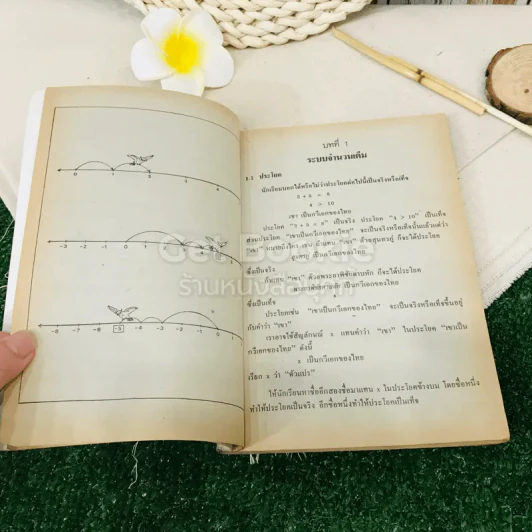 0 1 2 3 4
-3 -2 -1 0 1 2 3 4
-8 -7 -6 -5 -4 -3 -2 -1 0
บทที่ 1
ระบบจำนวนเต็ม
1.1 ประโยค
นักเรียนบอกได้หรือไม่ว่าประโยคต่อไปนี้เป็นจริงหรือเท็จ
3 + 5 = 8
4 > 10
เขา เป็นกวีเอกของไทย
ประโยค "3 + 5 = 8" เป็นจริง ประโยค "4 > 10" เป็นเท็จ
ส่วนประโยค "เขาเป็นกวีเอกของไทย" จะเป็นจริงหรือเท็จนั้นแล้วแต่ว่า
"เขา" ด้วยสุนทรภู่ ก็จะได้ประโยค
สุนทรภู่ เป็นกวีเอกของไทย
ซึ่งเป็นจริง
ถ้าแทน "เขา" ด้วย ก็จะได้ประโยค
เป็นกวีเอกของไทย
ซึ่งเป็นเท็จ
ประโยคเช่น "เขาเป็นกวีเอกของไทย" จะเป็นจริงหรือเท็จขึ้นอยู่
กับคำว่า "เขา"
เราอาจใช้สัญลักษณ์ x แทนคำว่า "เขา" ในประโยค "เขาเป็น
กวีเอกของไทย" ดังนี้
x เป็นกวีเอกของไทย
เรียก x ว่า "ตัวแปร"
ให้นักเรียนหาชื่ออีกสองชื่อมาแทน x ในประโยคข้างบน โดยชื่อหนึ่ง
ทำให้ประโยคเป็นจริง อีกชื่อหนึ่งทำให้ประโยคเป็นเท็จ
ร้านหนังสือลุงไก่